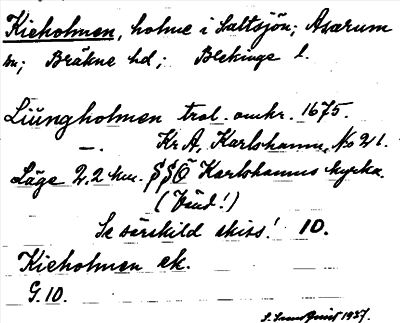 Kieholmen, holme i Saltsjön; Asarum
sn; Bräkne hd; Blekinge l.
Liungholmen trol. omkr. 1675.
—. Kr A, Karlshamn, No 21.
Läge 2,2 km. SSÖ Karlshamns kyrka.
(Vänd!)
Se särskild skiss! 10.
Kieholmen ek.
G. 10.
1937.